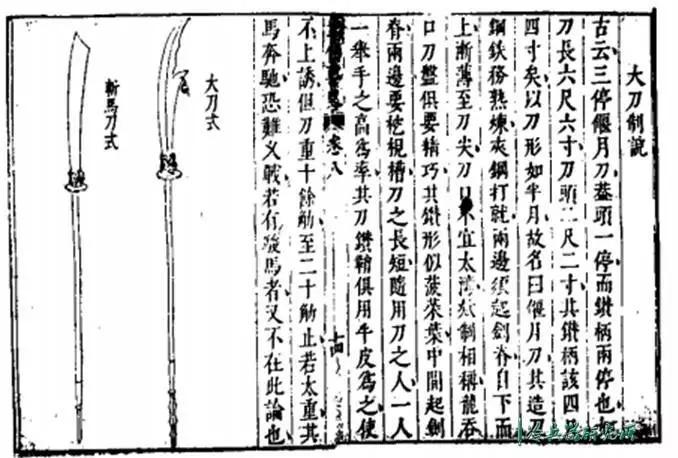 大刀制說
古云三停偃月刀葢頭一停而鐏柄兩停也
刀長六尺六寸刀頭二尺二寸其鐏柄該四
四寸矣以刀形如半月故名曰偃月刀其造刀
鋼鉄務熟煉夾鋼打就兩邊須起劍脊自下而
上漸薄至刀尖刀口不宜太灣制相稱龍吞
口刀盤俱要精巧其鐏形似菠菜葉中間起劍
脊兩邊要挖規槽刀之長短隨用刀之人一人
一舉手之高爲率其刀鐏鞘俱用牛皮爲之使
卷八
十四
不上誘但刀重十餘觔至二十觔止若太重其
馬奔馳恐難乂戰若有駿馬者又不在此論也
大刀式
斬馬刀式